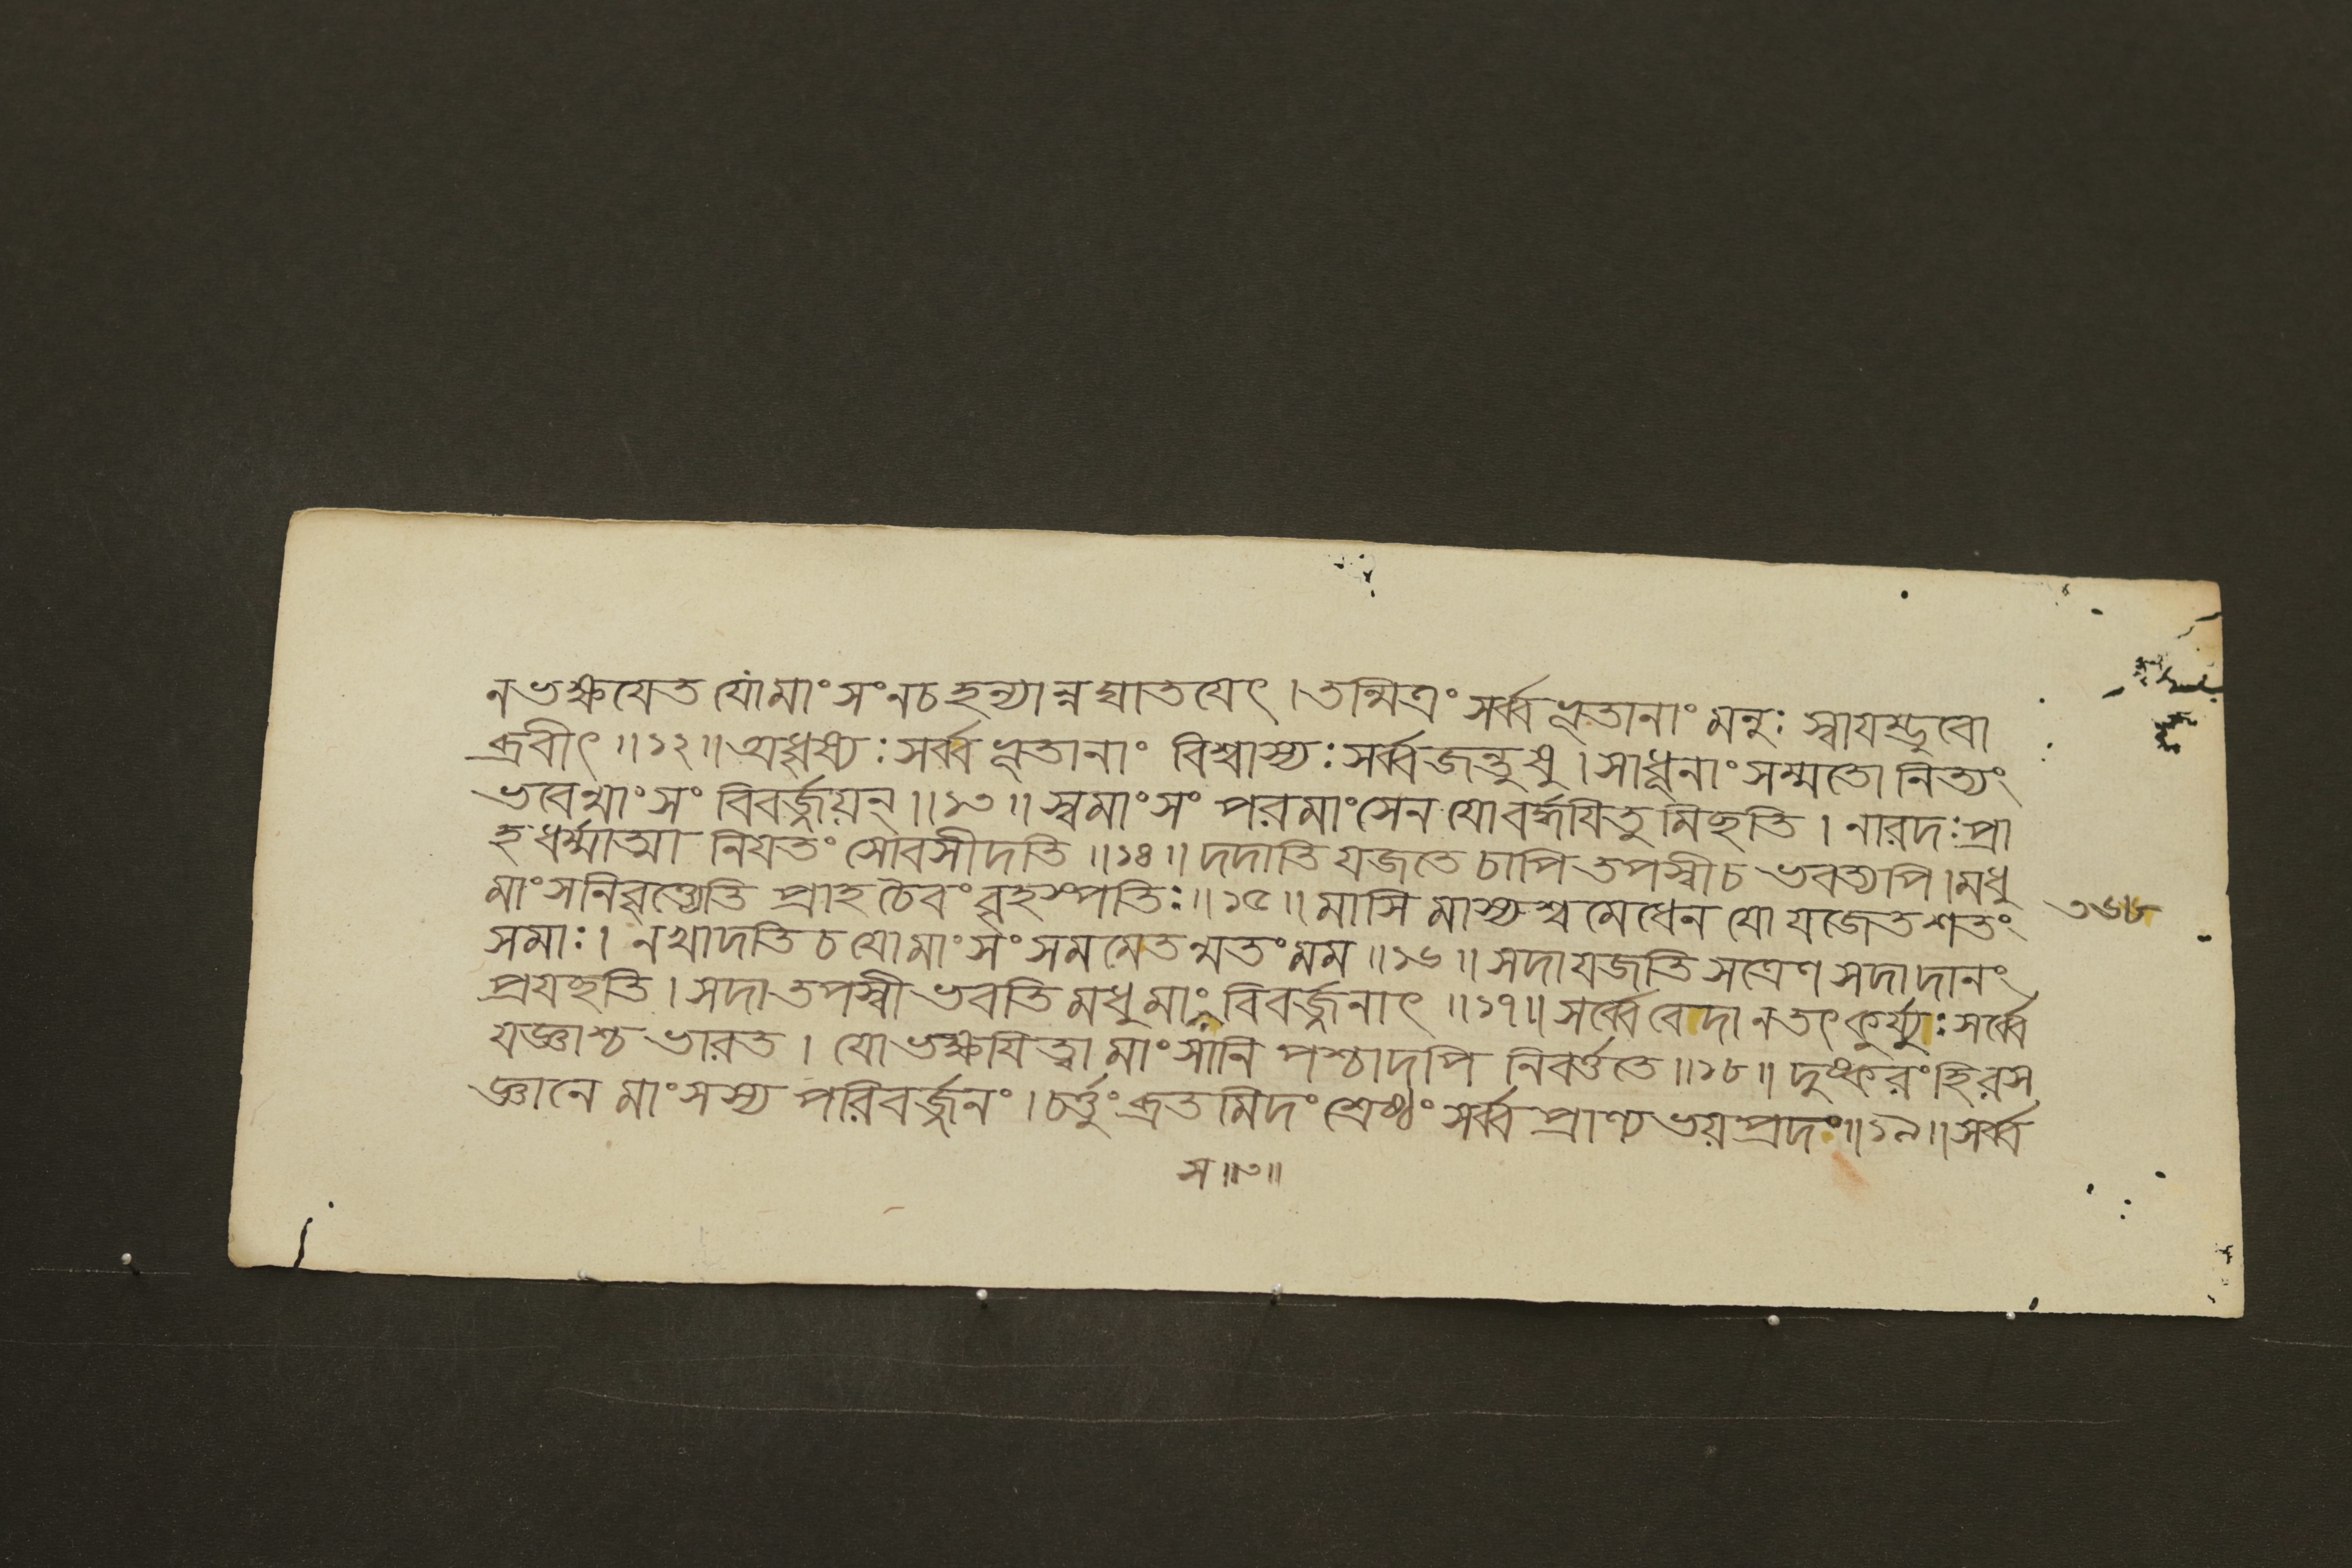 ন ভক্ষযেত যোমাংসংনচহন্যান্নঘাতযেৎ।তন্মিত্রং সর্ব্বভূতানাং মনুঃ স্বাযম্ভুবো
ব্রবীৎ॥১২॥অধৃষ্যঃসর্ব্বভূতানাং বিশ্বাস্যঃসর্ব্বজন্তুষু।সাধূনাংসম্মতো নিত্যং
ভবেন্মাংসং বিবর্জ্জয়ন্॥১৩॥স্বমাংসং পরমাংসেন যোবর্দ্ধযিতুমিছতি।নারদঃপ্রা
হধর্ম্মাত্মা নিযতং সোবসীদতি॥১৪॥দদাতি যজতে চাপি তপস্বীচ ভবত্যপি।মধু
মাংসনিবৃত্ত্যেতি প্রাহচৈবংবৃহস্পতিঃ॥১৫॥মাসি মাস্যশ্বমেধেন যো যজেতশতং
সমাঃ। নখাদতি চ যোমাংসং সমমেতন্মতংমম॥১৬॥সদাযজতি সত্রেণ সদাদানং
প্রযছতি।সদাতপস্বী ভবতি মধুমাং বিবর্জ্জনাৎ॥১৭॥সর্ব্বেবেদানতৎকুর্য্যুঃসর্ব্বে
যজ্ঞাশ্চ ভারত। যোভক্ষযিত্বা মাংসানি পশ্চাদপি নিবর্ত্ততে॥১৮॥দুষ্করংহিরস
জ্ঞানে মাংসস্য পরিবর্জ্জনং।চর্ত্তুংব্রতমিদং শ্রেষ্ঠং সর্ব্বপ্রাণ্যভয়প্রদং॥১৯॥সর্ব্ব
স॥৩॥
৩৬৮